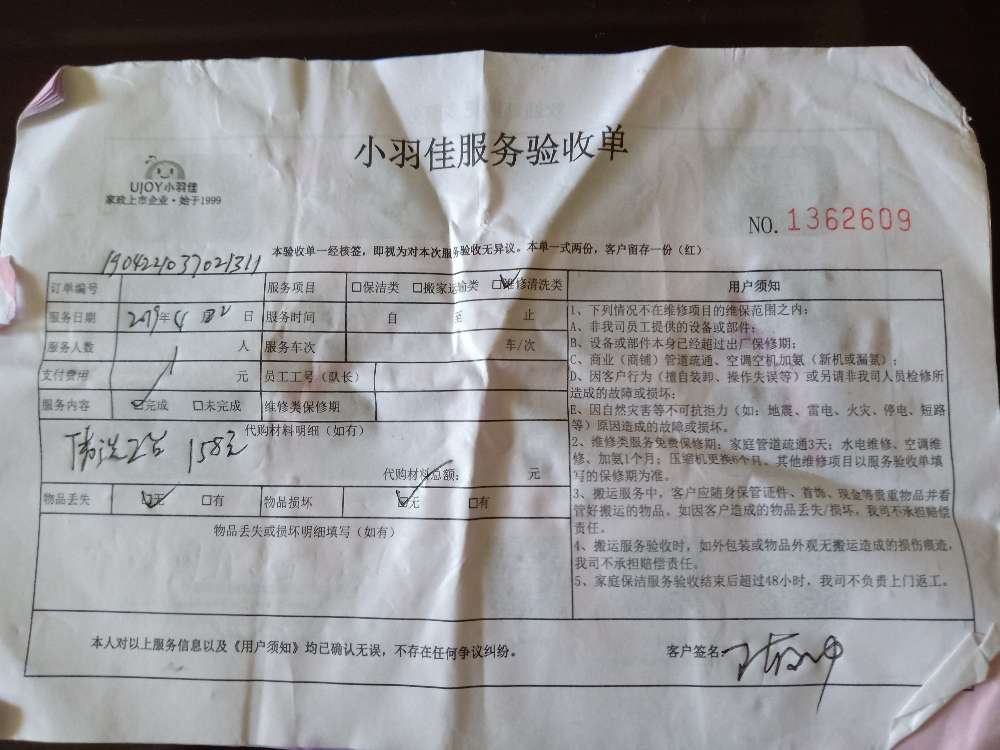 小羽佳服务验收单
UJOY小羽佳
家政上市企业·始于1999
NO. 1362609
本验收单一经核签，即视为对本次服务验收无异议。本单一式两份，客户留存一份（红）
190422103702131
订单编号 服务项目 □保洁类 □搬家运输类 ☑维修清洗类
服务日期 2019年4月2日 服务时间 自 至 止
服务人数 1 人 服务车次 车/次
支付费用 元 员工工号（队长）
服务内容 ☑完成 □未完成 维修类保修期
代购材料明细（如有）
清洗2台 158元
代购材料总额： 元
物品丢失 ☑无 □有 物品损坏 ☑无 □有
物品丢失或损坏明细填写（如有）
用户须知
1、下列情况不在维修项目的维保范围之内：
A、非我司员工提供的设备或部件；
B、设备或部件本身已经超过出厂保修期；
C、商业（商铺）管道疏通、空调空机加氨（新机或漏氨）；
D、因客户行为（擅自装卸、操作失误等）或另请非我司人员检修所
造成的故障或损坏；
E、因自然灾害等不可抗拒力（如：地震、雷电、火灾、停电、短路
等）原因造成的故障或损坏。
2、维修类服务免费保修期：家庭管道疏通3天；水电维修、空调维
修、加氨1个月；压缩机更换6个月、其他维修项目以服务验收单填
写的保修期为准。
3、搬运服务中，客户应随身保管证件、首饰、现金等贵重物品并看
管好搬运的物品。如因客户造成的物品丢失/损坏，我司不承担赔偿
责任。
4、搬运服务验收时，如外包装或物品外观无搬运造成的损伤痕迹，
我司不承担赔偿责任。
5、家庭保洁服务验收结束后超过48小时，我司不负责上门返工。
本人对以上服务信息以及《用户须知》均已确认无误，不存在任何争议纠纷。
客户签名：